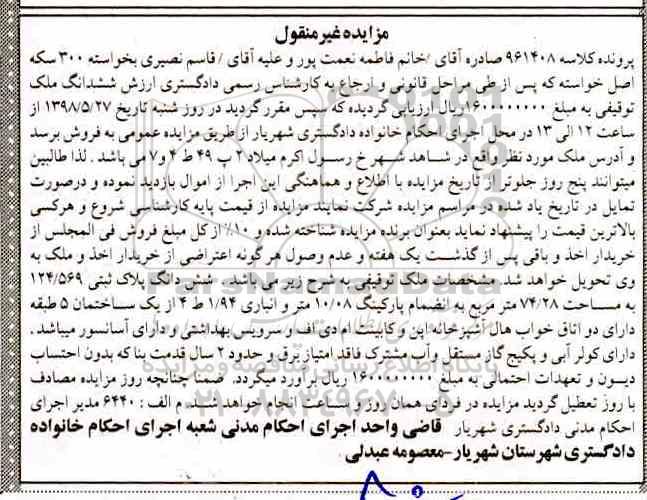 مزایده غیرمنقول
پرونده کلاسه ۹۶۱۴۰۸ صادره آقای /خانم فاطمه نعمت پور و علیه آقای / قاسم نصیری بخواسته ۳۰۰ سکه
اصل خواسته که پس از طی مراحل قانونی و ارجاع به کارشناس رسمی دادگستری ارزش ششدانگ ملک
توقیفی به مبلغ ۱۶۰۰۰۰۰۰۰۰ ریال ارزیابی گردیده که سپس مقرر گردید در روز شنبه تاریخ ۱۳۹۸/۵/۲۷ از
ساعت ۱۲ الی ۱۳ در محل اجرای احکام خانواده دادگستری شهریار از طریق مزایده عمومی به فروش برسد
و آدرس ملک مورد نظر واقع در شاهد شهر خ رسول اکرم میلاد ۲ پ ۴۹ ط ۴ و ۷ می باشد . لذا طالبین
میتوانند پنج روز جلوتر از تاریخ مزایده با اطلاع و هماهنگی این اجرا از اموال بازدید نموده و درصورت
تمایل در تاریخ یاد شده در مراسم مزایده شرکت نمایند مزایده از قیمت پایه کارشناسی شروع و هرکسی
بالاترین قیمت را پیشنهاد نماید بعنوان برنده مزایده شناخته شده و ۱۰٪ از کل مبلغ فروش فی المجلس از
خریدار اخذ و باقی پس از گذشت یک هفته و عدم وصول هر گونه اعتراضی از خریدار اخذ و ملک به
وی تحویل خواهد شد. مشخصات ملک توقیفی به شرح زیر می باشد . شش دانگ پلاک ثبتی ۱۲۴/۵۶۹
به مساحت ۷۴/۲۸ متر مربع به انضمام پارکینگ ۱۰/۰۸ متر و انباری ۱/۹۴ ط ۴ از یک ساختمان ۵ طبقه
دارای دو اتاق خواب هال آشپزخانه اپن و کابینت ام دی اف و سرویس بهداشتی و دارای آسانسور میباشد .
دارای کولر آبی و پکیج گاز مستقل وآب مشترک فاقد امتیاز برق و حدود ۲ سال قدمت بنا که بدون احتساب
دیون و تعهدات احتمالی به مبلغ ریال برآورد میگردد. ضمنا چنانچه روز مزایده مصادف
با روز تعطیل گردید مزایده در فردای همان روز و ساعت انجام خواهد شد. م الف : ۶۴۴۰ مدیر اجرای
احکام مدنی دادگستری شهریار قاضی واحد اجرای احکام مدنی شعبه اجرای احکام خانواده
دادگستری شهرستان شهریار-معصومه عبدلی